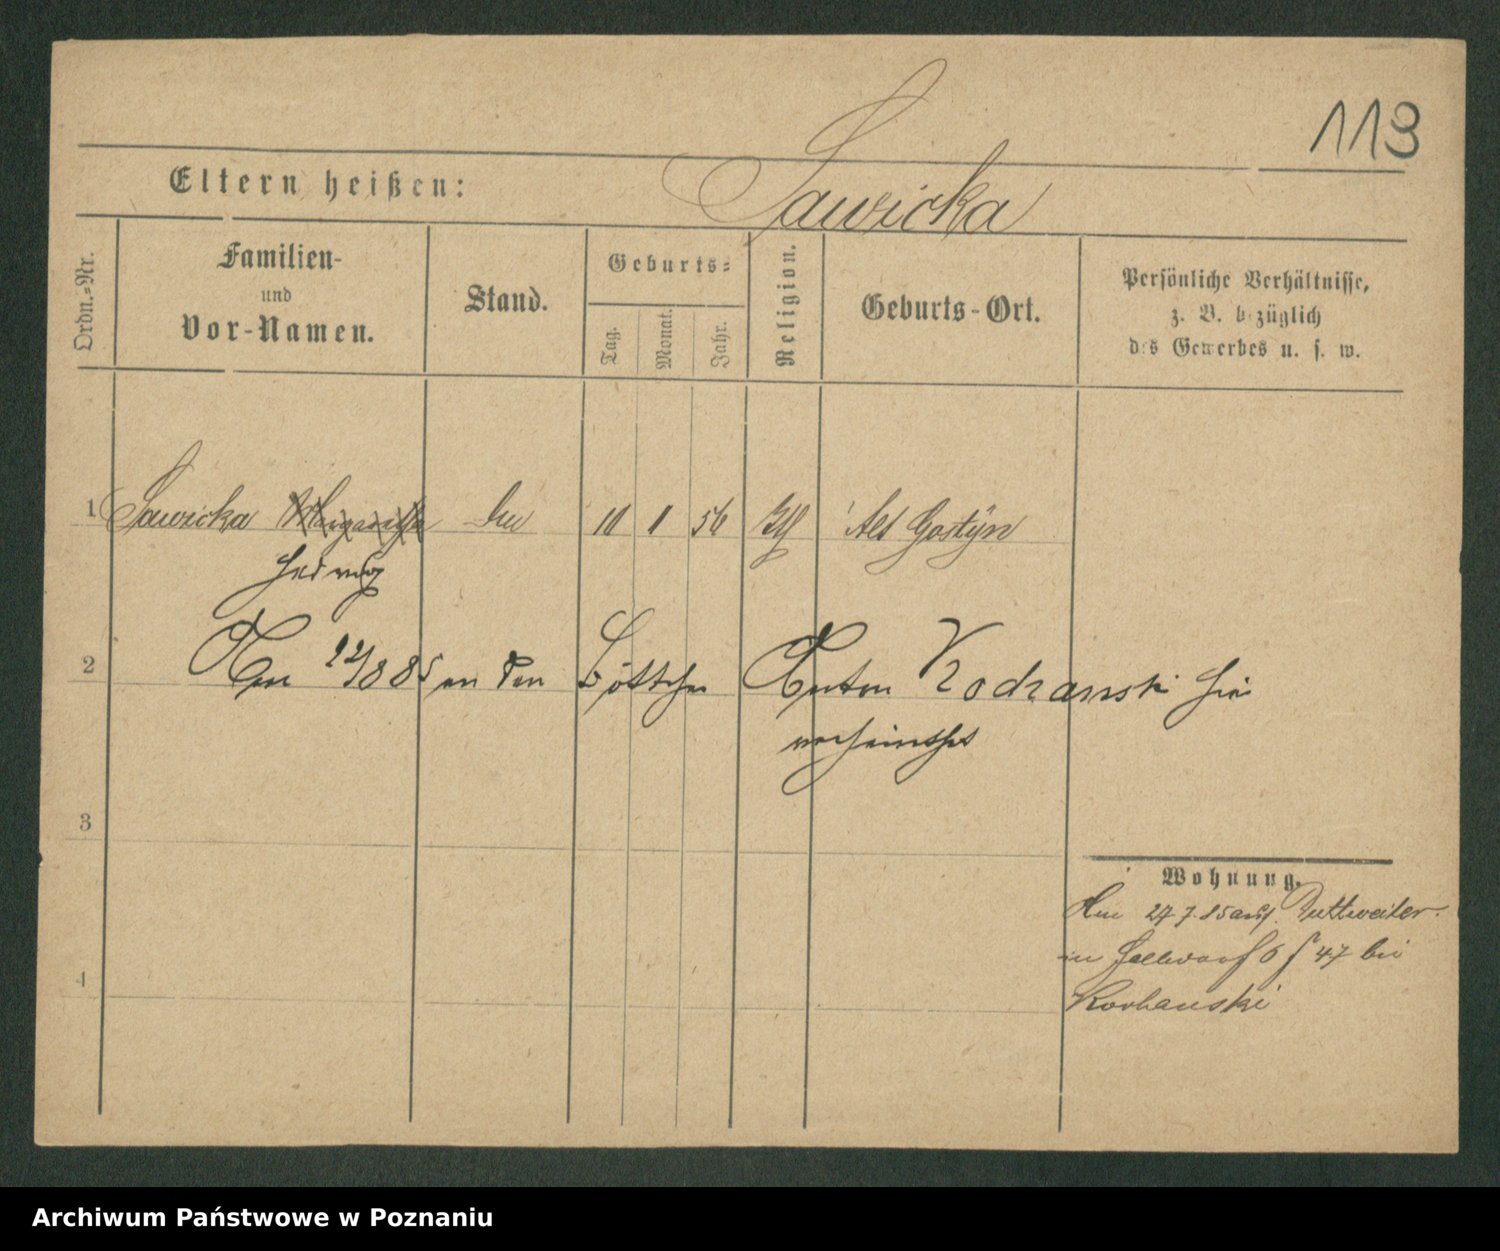 113
Eltern heißen: Sawicka
Ordn.-Nr.
Familien-
und
Vor-Namen.
Stand.
Geburts-
Tag.
Monat.
Jahr.
Religion.
Geburts-Ort.
Persönliche Verhältnisse,
z. B. bezüglich
des Gewerbes u. s. w.
1 Sawicka Margaretha 10 1 56 Alt Gostÿn
Hedwig
2 Am 22/8 85 an den Böttcher Anton Kodranski hie
verheirathet
3
Wohnung.
Am 24 7. 85 auf Buttweiler.
in 47 bei
4
Archiwum Państwowe w Poznaniu